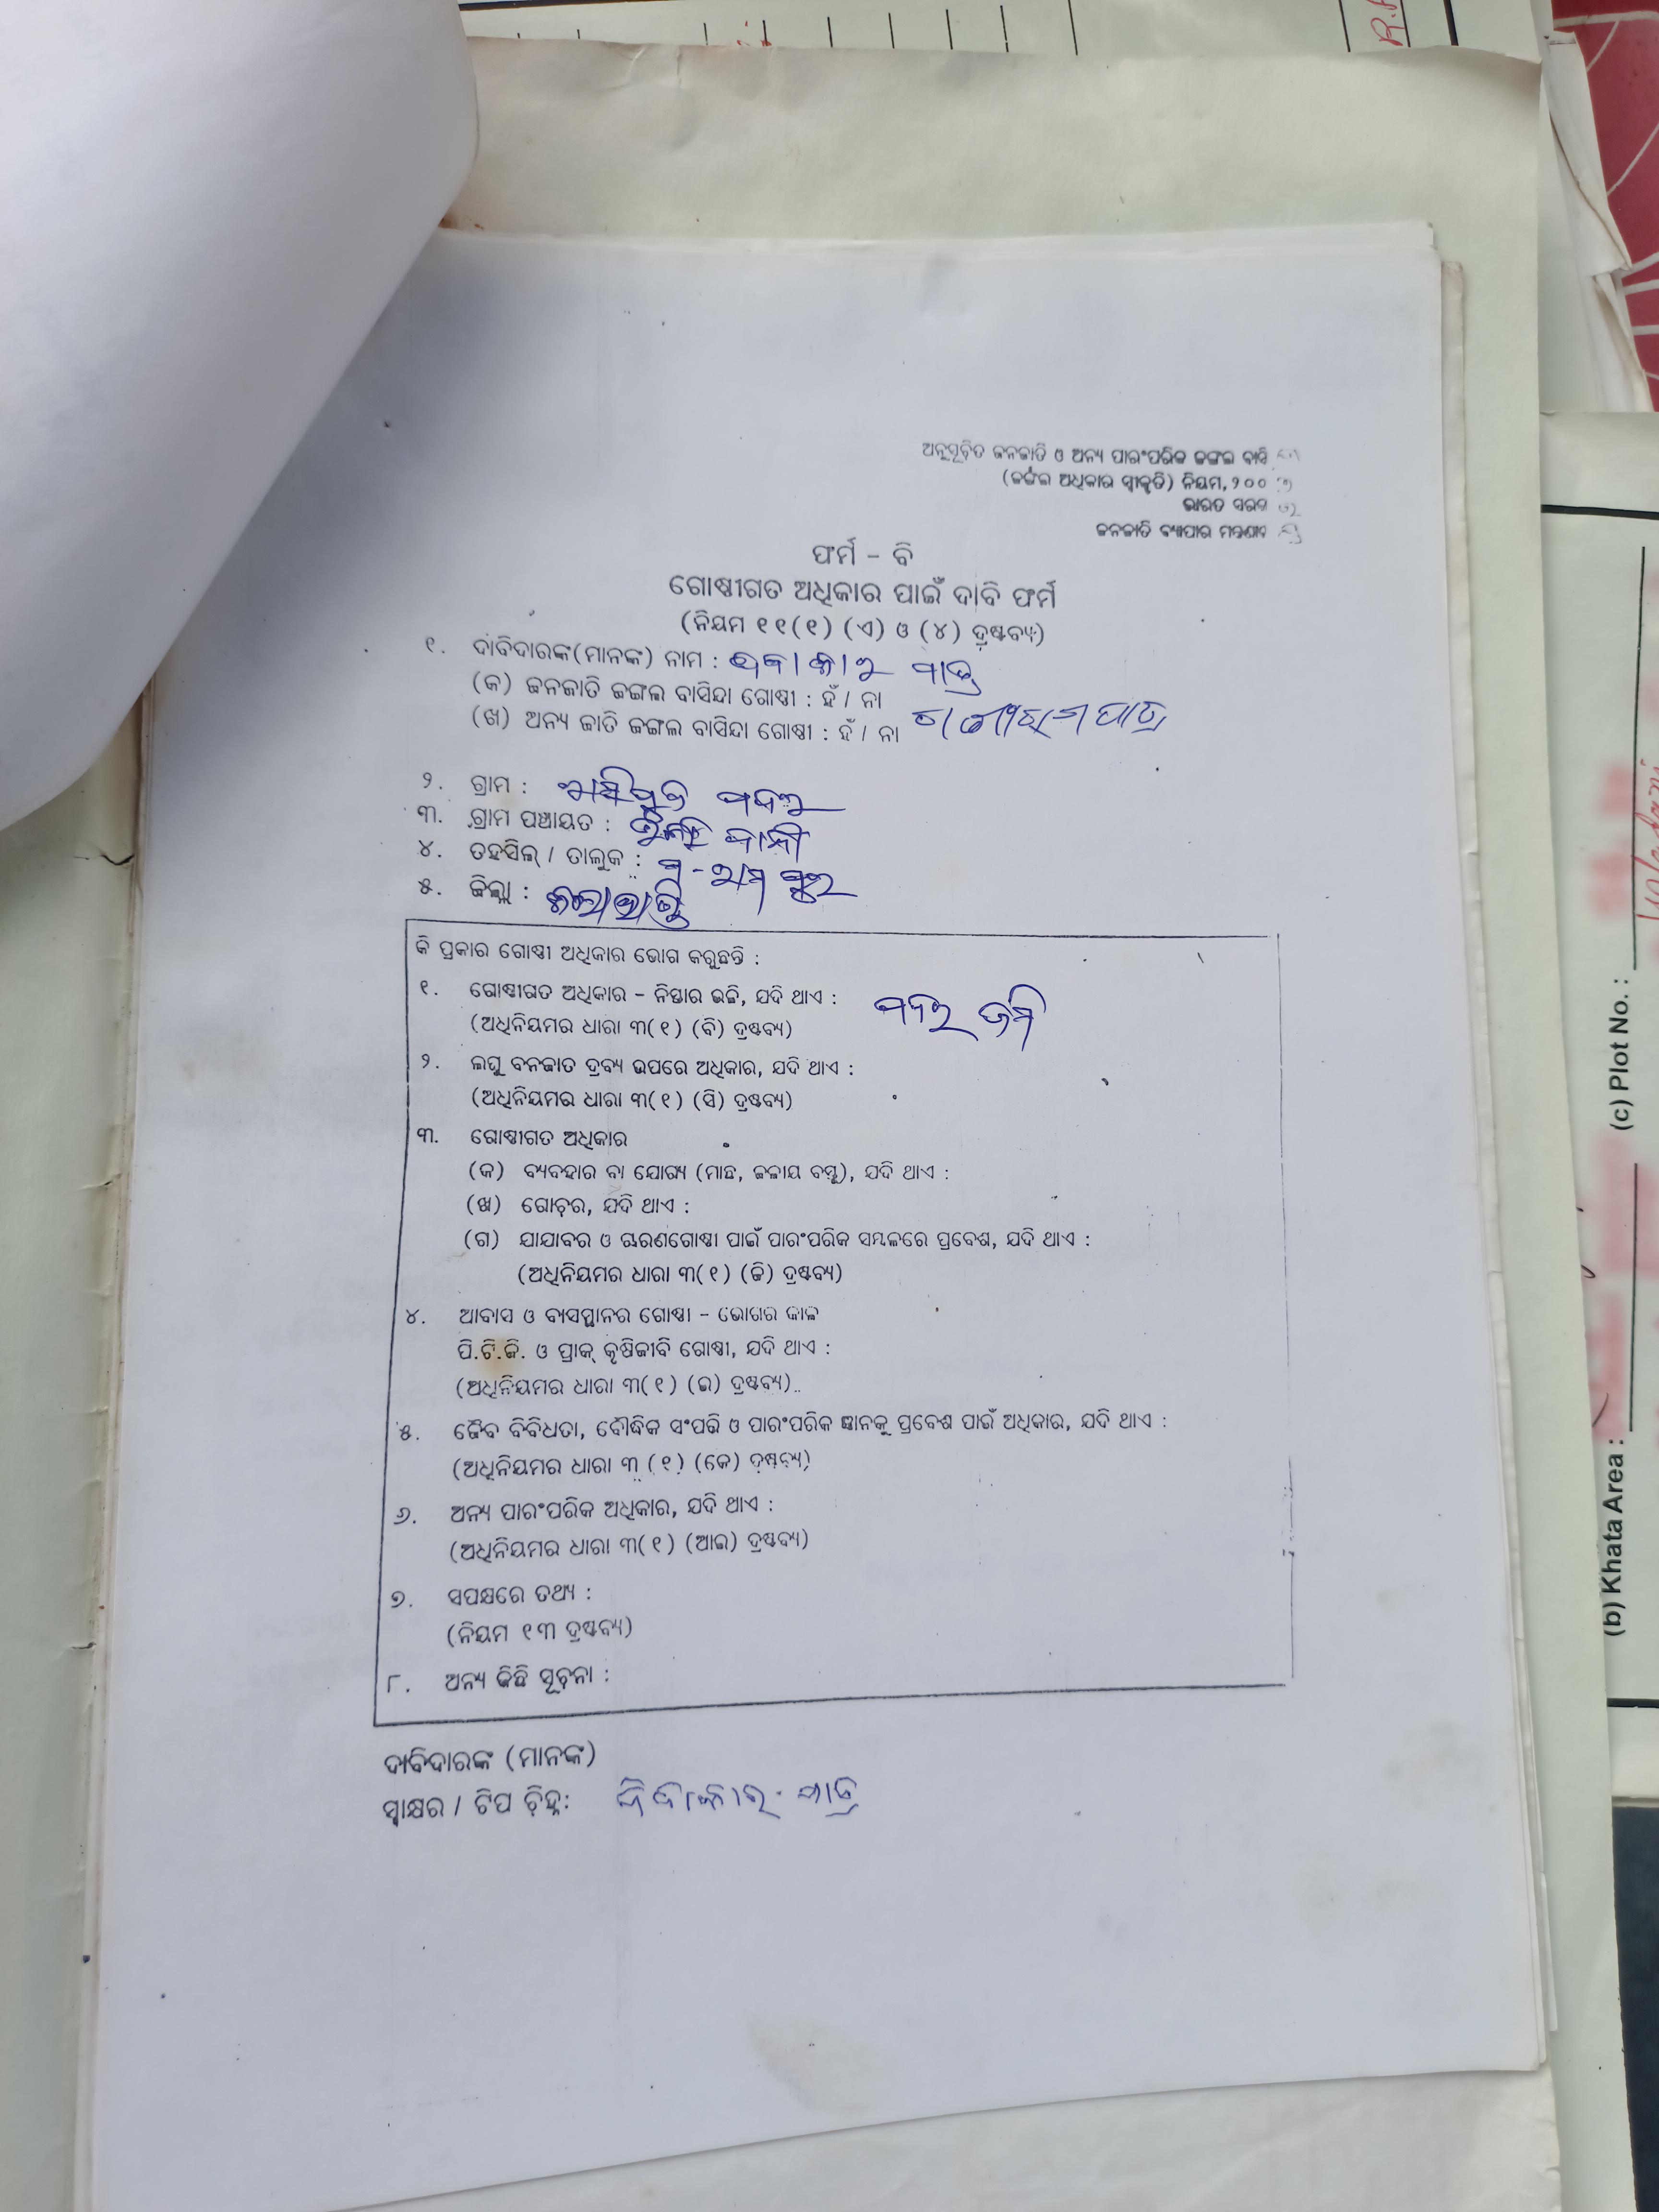 ଅନୁସୂଚିତ ଜନଜାତି ଓ ଅନ୍ୟ ପାରଂପରିକ ଜଙ୍ଗଲ ବାସି
(ଜଙ୍ଗଲ ଅଧିକାର ସ୍ୱୀକୃତି) ନିୟମ, ୨୦୦
ଭାରତ ସରକ
ଜନଜାତି ବ୍ୟାପାର ମନ୍ତ୍ରଣାଳ
ଫର୍ମ - ବି
ଗୋଷ୍ଠୀଗତ ଅଧିକାର ପାଇଁ ଦାବି ଫର୍ମ
(ନିୟମ ୧୧(୧) (ଏ) ଓ (୪) ଦ୍ରଷ୍ଟବ୍ୟ)
୧. ଦାବିଦାରଙ୍କ(ମାନଙ୍କ) ନାମ : ପାତ୍ର
(କ) ଜନଜାତି ଜଙ୍ଗଲ ବାସିନ୍ଦା ଗୋଷ୍ଠୀ : ହଁ / ନା
(ଖ) ଅନ୍ୟ ଜାତି ଜଙ୍ଗଲ ବାସିନ୍ଦା ଗୋଷ୍ଠୀ : ହଁ / ନା ପାତ୍ର
୨. ଗ୍ରାମ :
୩. ଗ୍ରାମ ପଞ୍ଚାୟତ :
୪. ତହସିଲ୍ / ତାଲୁକ :
୫. ଜିଲ୍ଲା :
କି ପ୍ରକାର ଗୋଷ୍ଠୀ ଅଧିକାର ଭୋଗ କରୁଛନ୍ତି :
୧. ଗୋଷ୍ଠୀଗତ ଅଧିକାର - ନିସ୍ତାର ଭଳି, ଯଦି ଥାଏ :
(ଅଧିନିୟମର ଧାରା ୩(୧) (ବି) ଦ୍ରଷ୍ଟବ୍ୟ)
୨. ଲଘୁ ବନଜାତ ଦ୍ରବ୍ୟ ଉପରେ ଅଧିକାର, ଯଦି ଥାଏ :
(ଅଧିନିୟମର ଧାରା ୩(୧) (ସି) ଦ୍ରଷ୍ଟବ୍ୟ)
୩. ଗୋଷ୍ଠୀଗତ ଅଧିକାର
(କ) ବ୍ୟବହାର ବା ଯୋଗ୍ୟ (ମାଛ, ଜଳୀୟ ବସ୍ତୁ), ଯଦି ଥାଏ :
(ଖ) ଗୋଚର, ଯଦି ଥାଏ :
(ଗ) ଯାଯାବର ଓ ଚାରଣଗୋଷ୍ଠୀ ପାଇଁ ପାରଂପରିକ ସମ୍ବଳରେ ପ୍ରବେଶ, ଯଦି ଥାଏ :
(ଅଧିନିୟମର ଧାରା ୩(୧) (ଜି) ଦ୍ରଷ୍ଟବ୍ୟ)
୪. ଆବାସ ଓ ବାସସ୍ଥାନର ଗୋଷ୍ଠୀ - ଭୋଗର କାଳ
ପି.ଟି.ଜି. ଓ ପ୍ରାକ୍ କୃଷିଜୀବି ଗୋଷ୍ଠୀ, ଯଦି ଥାଏ :
(ଅଧିନିୟମର ଧାରା ୩(୧) (ଇ) ଦ୍ରଷ୍ଟବ୍ୟ)
୫. ଜୈବ ବିବିଧତା, ବୌଦ୍ଧିକ ସଂପତ୍ତି ଓ ପାରଂପରିକ ଜ୍ଞାନକୁ ପ୍ରବେଶ ପାଇଁ ଅଧିକାର, ଯଦି ଥାଏ :
(ଅଧିନିୟମର ଧାରା ୩ (୧) (କେ) ଦ୍ରଷ୍ଟବ୍ୟ)
୬. ଅନ୍ୟ ପାରଂପରିକ ଅଧିକାର, ଯଦି ଥାଏ :
(ଅଧିନିୟମର ଧାରା ୩(୧) (ଆଇ) ଦ୍ରଷ୍ଟବ୍ୟ)
୭. ସପକ୍ଷରେ ତଥ୍ୟ :
(ନିୟମ ୧୩ ଦ୍ରଷ୍ଟବ୍ୟ)
୮. ଅନ୍ୟ କିଛି ସୂଚନା :
ଦାବିଦାରଙ୍କ (ମାନଙ୍କ)
ସ୍ୱାକ୍ଷର / ଟିପ ଚିହ୍ନ: ପାତ୍ର
(b) Khata Area :
(c) Plot No. :